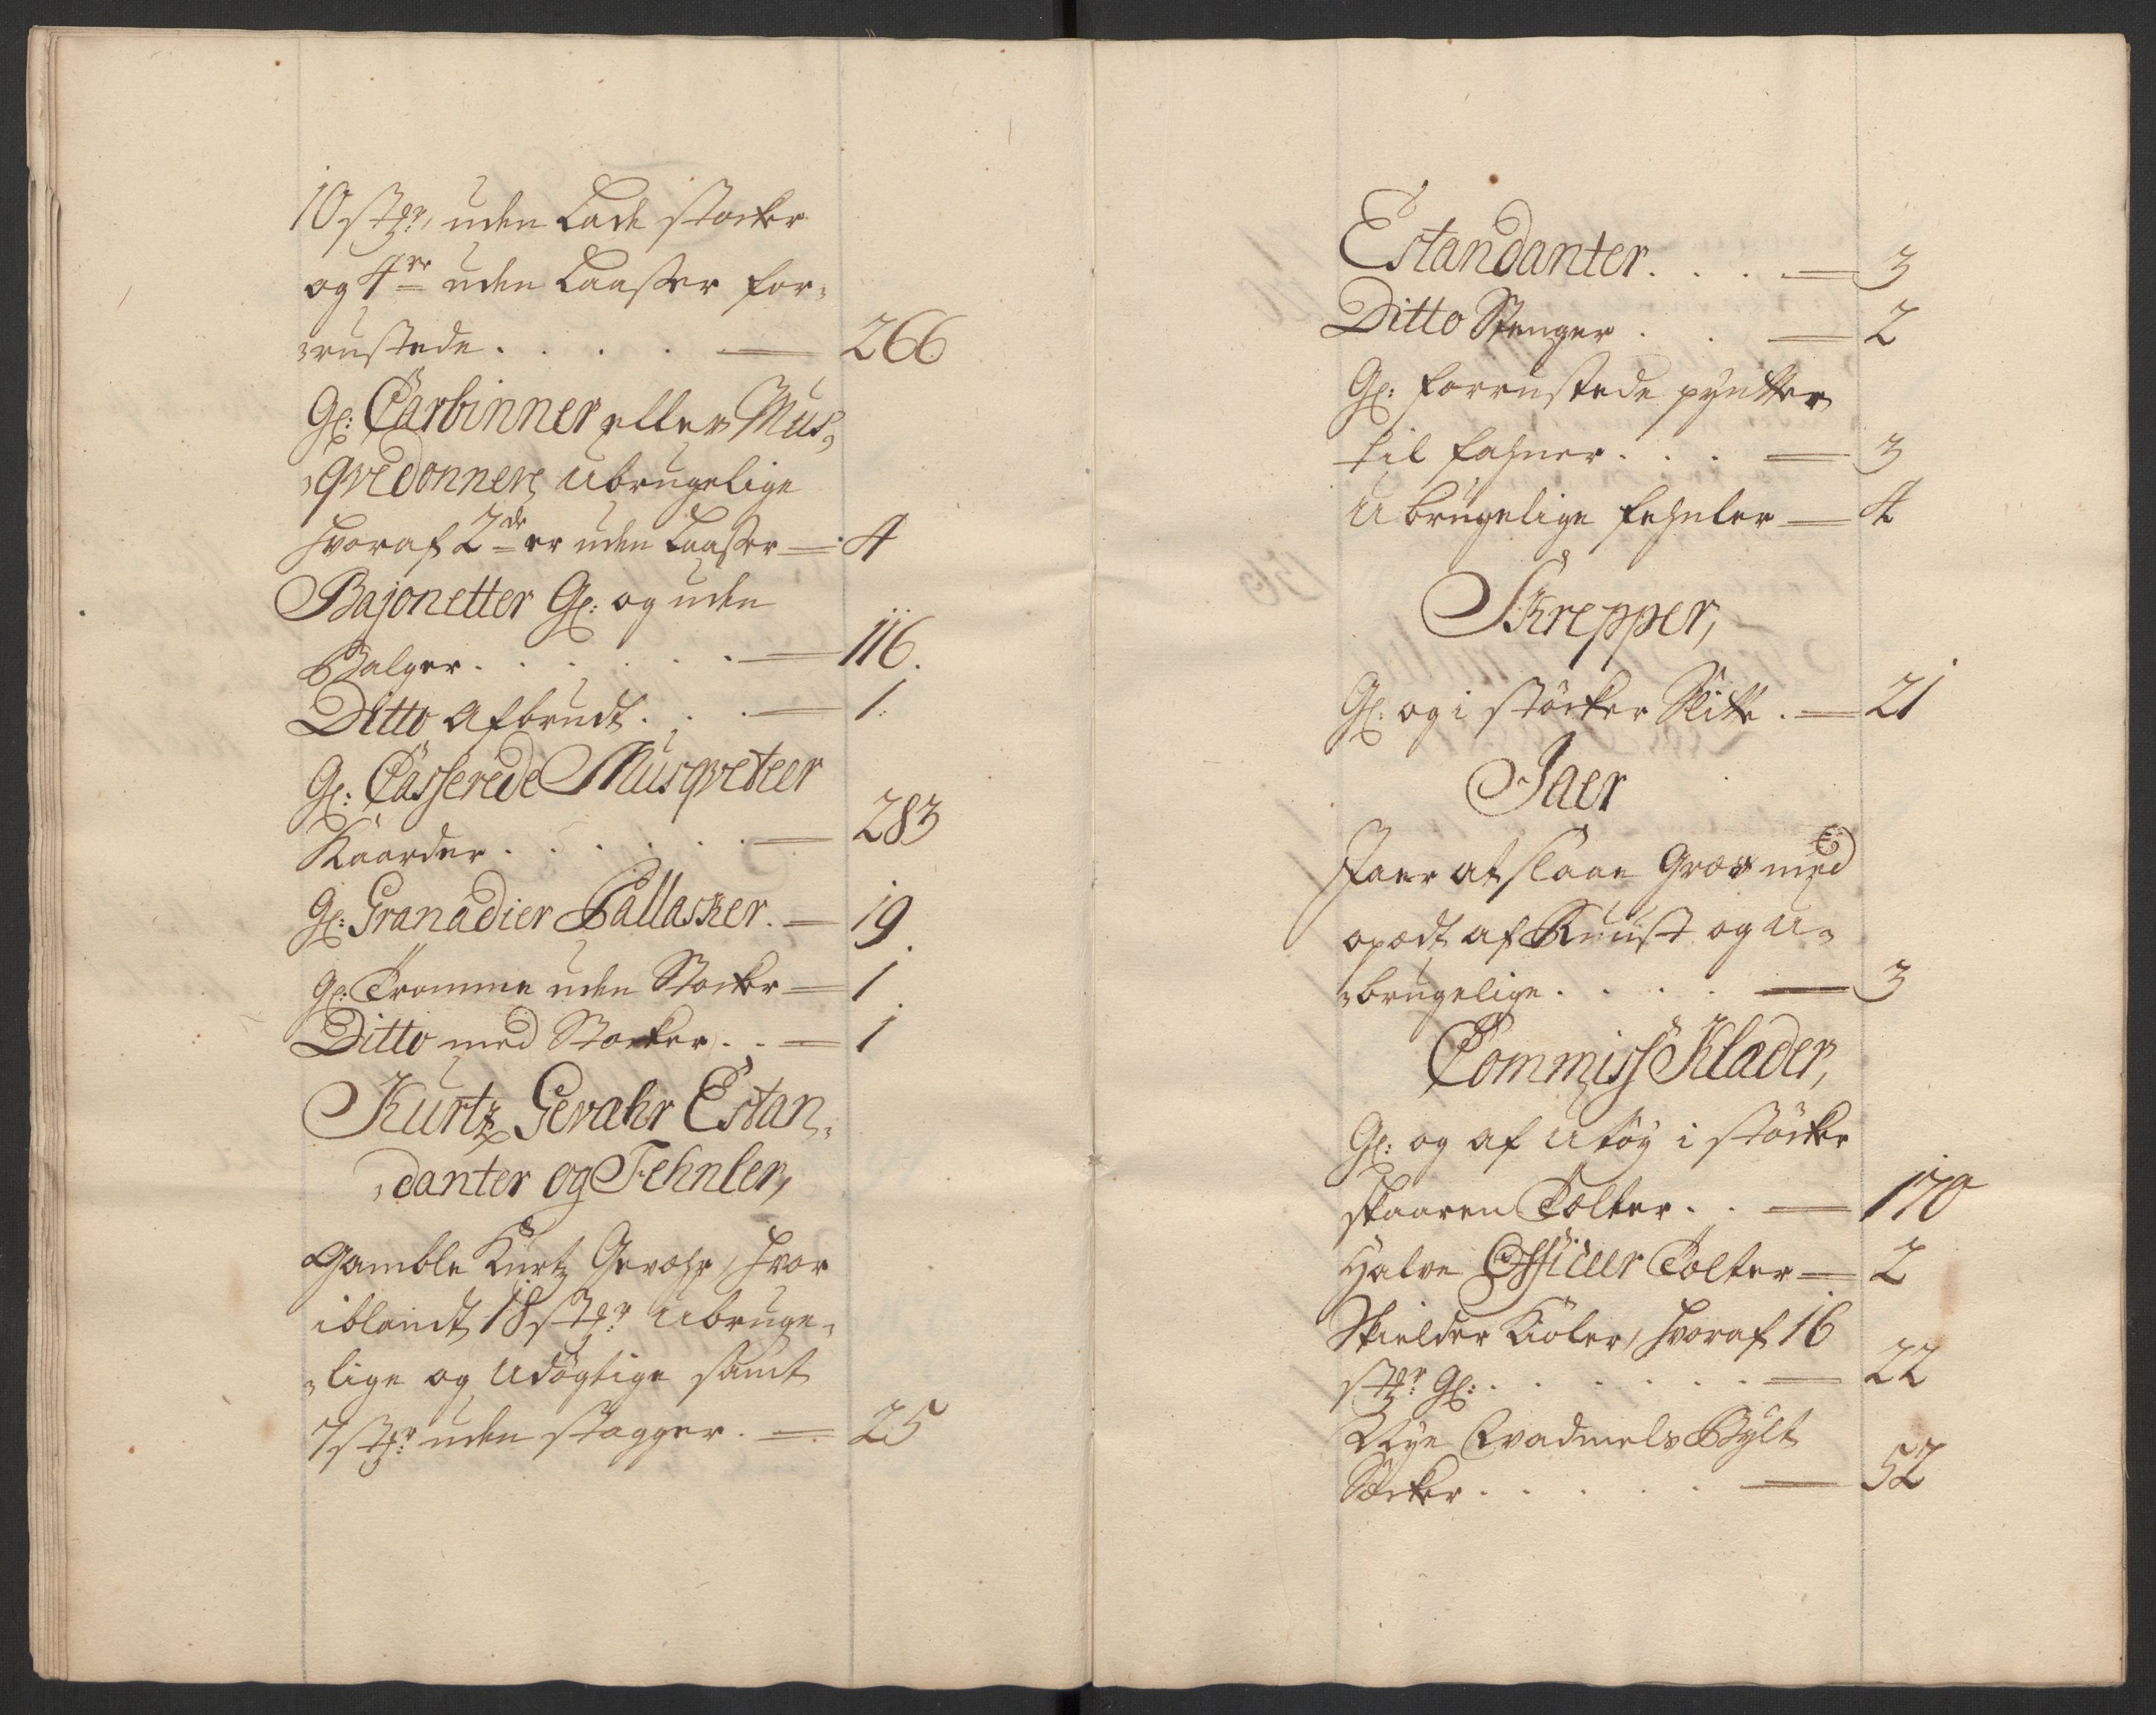 10 stkr, uden Lade stocker
og 4re uden Laasser for-
rustede . . . . — 266
Gl: Carbinner eller Mus-
qvedonner ubrugelige
hvoraf 2de er uden Laasser — 4
Bajonetter Gl: og uden
Balger . . . . . . — 116.
Ditto afbrudt . . . — 1.
Gl: Casserede Musqveteer
Kaarder . . . . . . — 283
Gl: Granadier Pallasker. — 19.
Gl: Tromme uden Stocker — 1.
Ditto med Stocker . . — 1
Kurtz Gevæhr Estan-
danter og Fehnler,
Gamble Kurtz Gevæhr, hvor
iblandt 18 stkr ubruge-
lige og Udögtige samt
7 stkr uden stagger . — 25
Estandanter . . . . — 3
Ditto Stenger . . — 2
Gl: forrustede pyntter
til fahner . . . — 3
Ubrugelige fehnler — 4
Skrepper,
Gl: og i störker Slitte . — 21
Jaer
Jaer at slaae Græs med
opædt af Ruust og u-
brugelige . . . . — 3
Commiss Klæder,
Gl: og af Utöy i störker
skaaren Tolter . . — 170
Halve Officeer Tolter — 2
Skielder Kioler, hvoraf 16
stkr Gl: . . . . . . — 22
Nye Qvadmels Bylt
Sæcker . . . . . — 52